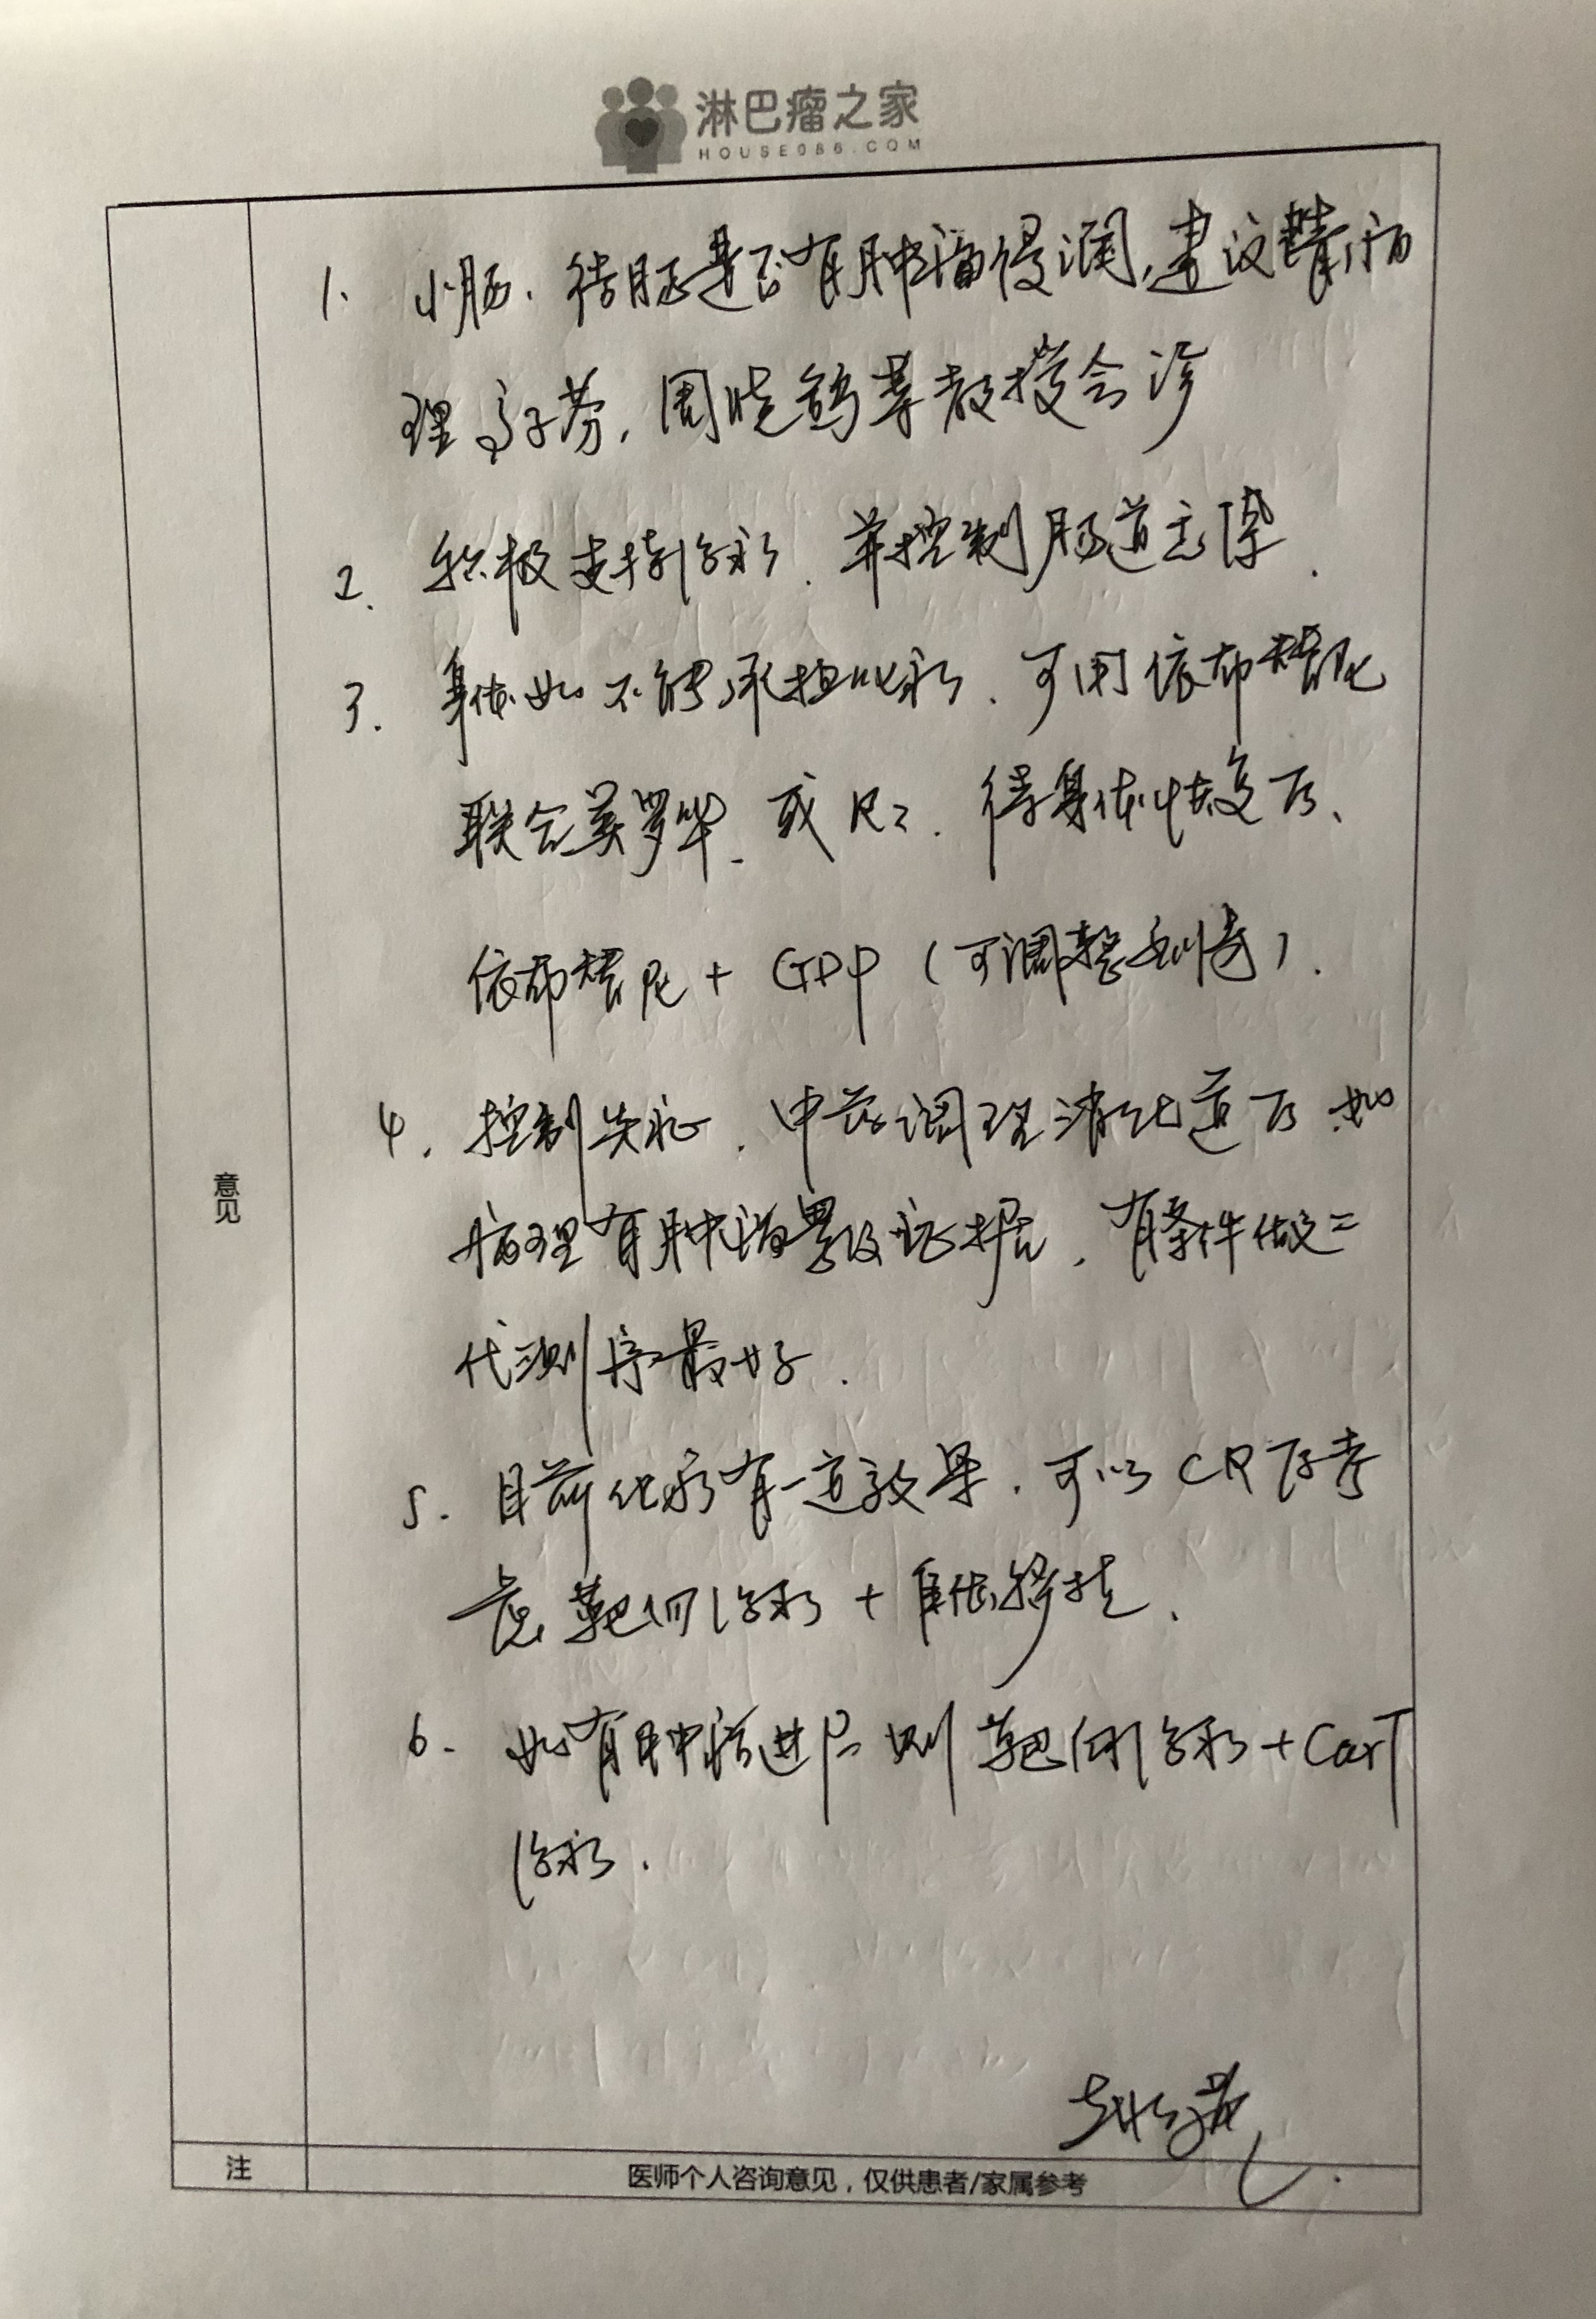 淋巴瘤之家
HOUSE086.COM
1. 小肠、结肠是否有肿瘤侵润,建议请病
理高子芬,周晓鸽等教授会诊
2. 积极支持治疗.并控制肠道
3. 身体如不能承担化疗.可用依布替尼
联合美罗华.或R2.待身体恢复后、
依布替尼 + GDP (可调整剂
4. 控制炎症.中药调理消化道后.如
病理有肿瘤累及证据,有条件做二
代测序最好.
5. 目前化疗有一定效果.可以CR后考
虑靶向治疗 + 自体移植.
6. 如有肿瘤进展则靶向治疗 + CarT
治疗.
意见
注
医师个人咨询意见,仅供患者/家属参考